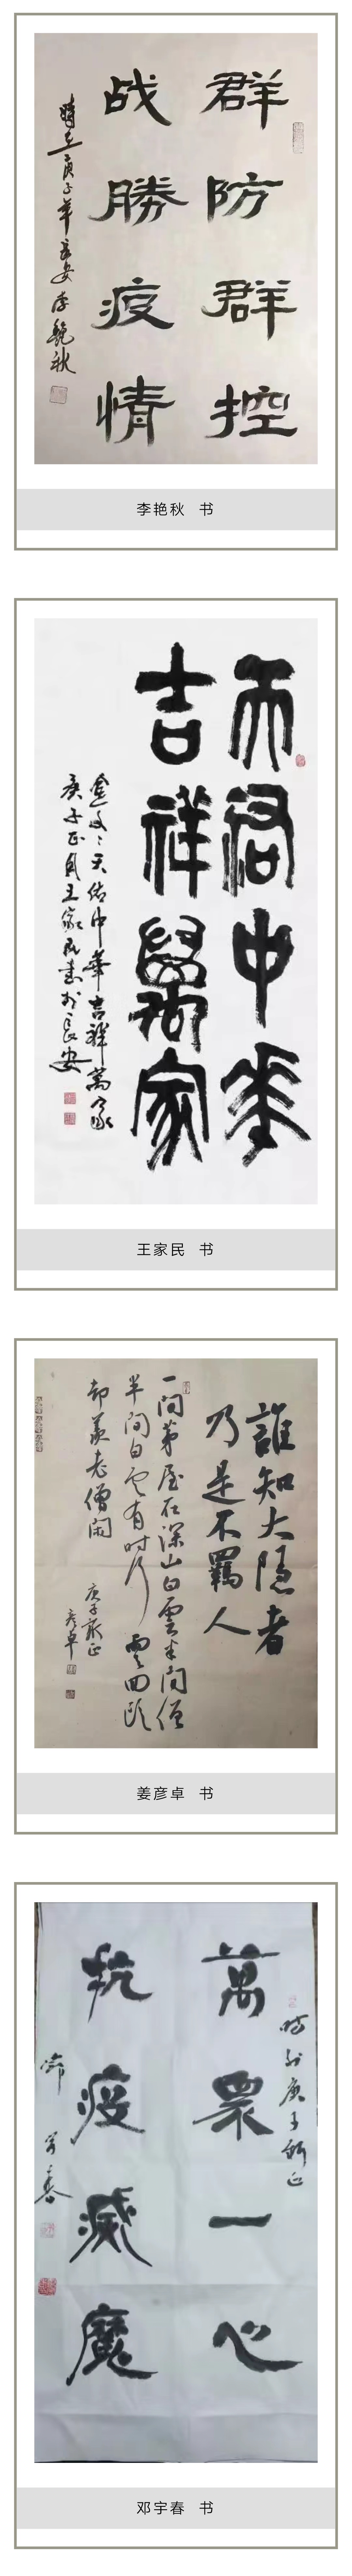 群防群控
战勝疫情
時在庚子年長安李艳秋
李艳秋 书
天佑中華
吉祥萬家
金文：天佑中華吉祥萬家
庚子正月王家民書於長安
王家民 书
誰知大隐者
乃是不羈人
一间茅屋在深山白雲半间僧
半间白雲有时行雲回
却羨老僧闲
庚子歲正
彦卓
姜彦卓 书
時於庚子新正
萬眾一心
抗疫滅魔
宇春
邓宇春 书